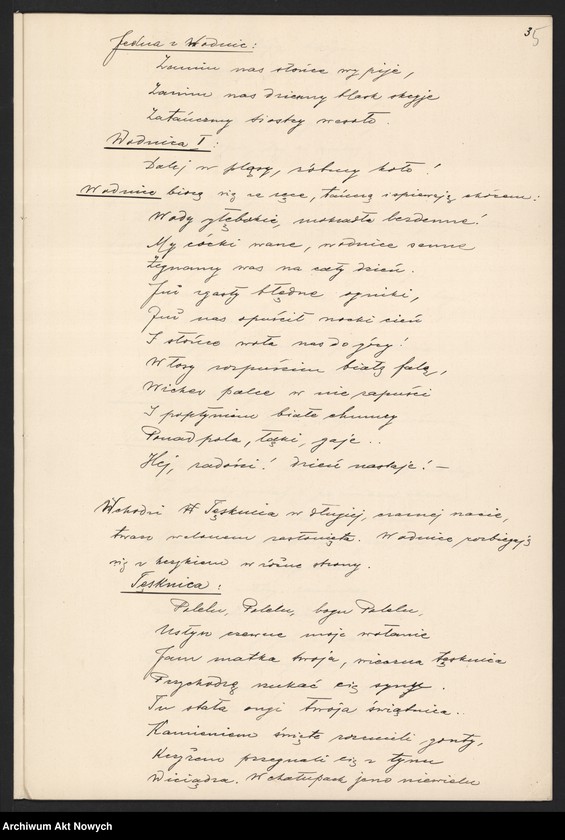 35
Jedna z Wodnic:
Zanim nas słońce wypije,
Zanim nas dzienny blask skryje
Zatańczmy siostry wesoło.
Wodnica I:
Dalej w pląsy, róbmy koło!
Wodnice biorą się za ręce, tańczą i śpiewają chórem:
Wody głębokie, mokradła bezdenne!
My córki wasze, wodnice senne
Żegnamy was na cały dzień.
Już zgasły błędne ogniki,
Już nas opuścił nocki cień
I słońce woła nas do góry!
Włosy rozpuścim białą falą,
Wicher palce w nie zapuści
I popłyniem białe chmury
Ponad pola, łąki, gaje..
Hej, radości! dzień nastaje! —
Wchodzi Tęsknica w długiej, czarnej szacie,
twarz welonem zasłonięta. Wodnice rozbiegają
się z krzykiem w różne strony.
Tęsknica:
Polelu, Polelu, bogu Polelu,
Usłysz rzewne moje wołanie
Jam matka twoja, wieczna tęsknica
Przychodzę szukać cię synu.
Tu stała ongi twoja świątnica.
Kamieniem święte rozwalili gonty,
Krzyżem przegnali cię z tynu
Wiciądza. W chatupach jeno niewielu